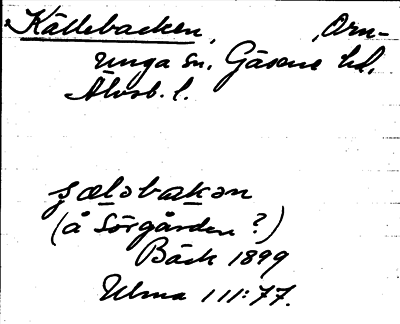 Källebacken, Orn-
unga sn. Gäsene hd.
Älvsb. l.
ꞩæləbakən
(å Sörgården ?)
Bäck 1899
Ulma 111:77.